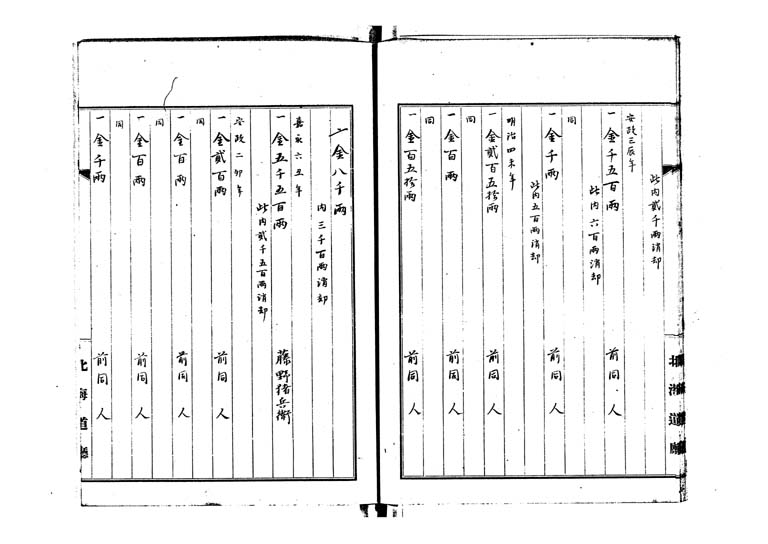 此内貳千両消却
安政三辰年
一金千五百両 前同人
此内六百両消却
同
一金千両 前同人
此内五百両消却
明治四未年
一金貳百五拾両 前同人
同
一金百両 前同人
同
一金百五拾両 前同人
北海道廳
一金八千両
内三千百両消却
嘉永六丑年
一金五千五百両 藤野猪兵衛
此内貳千五百両消却
安政二卯年
一金貳百両 前同人
同
一金百両 前同人
同
一金百両 前同人
同
一金千両 前同人
北海道廳